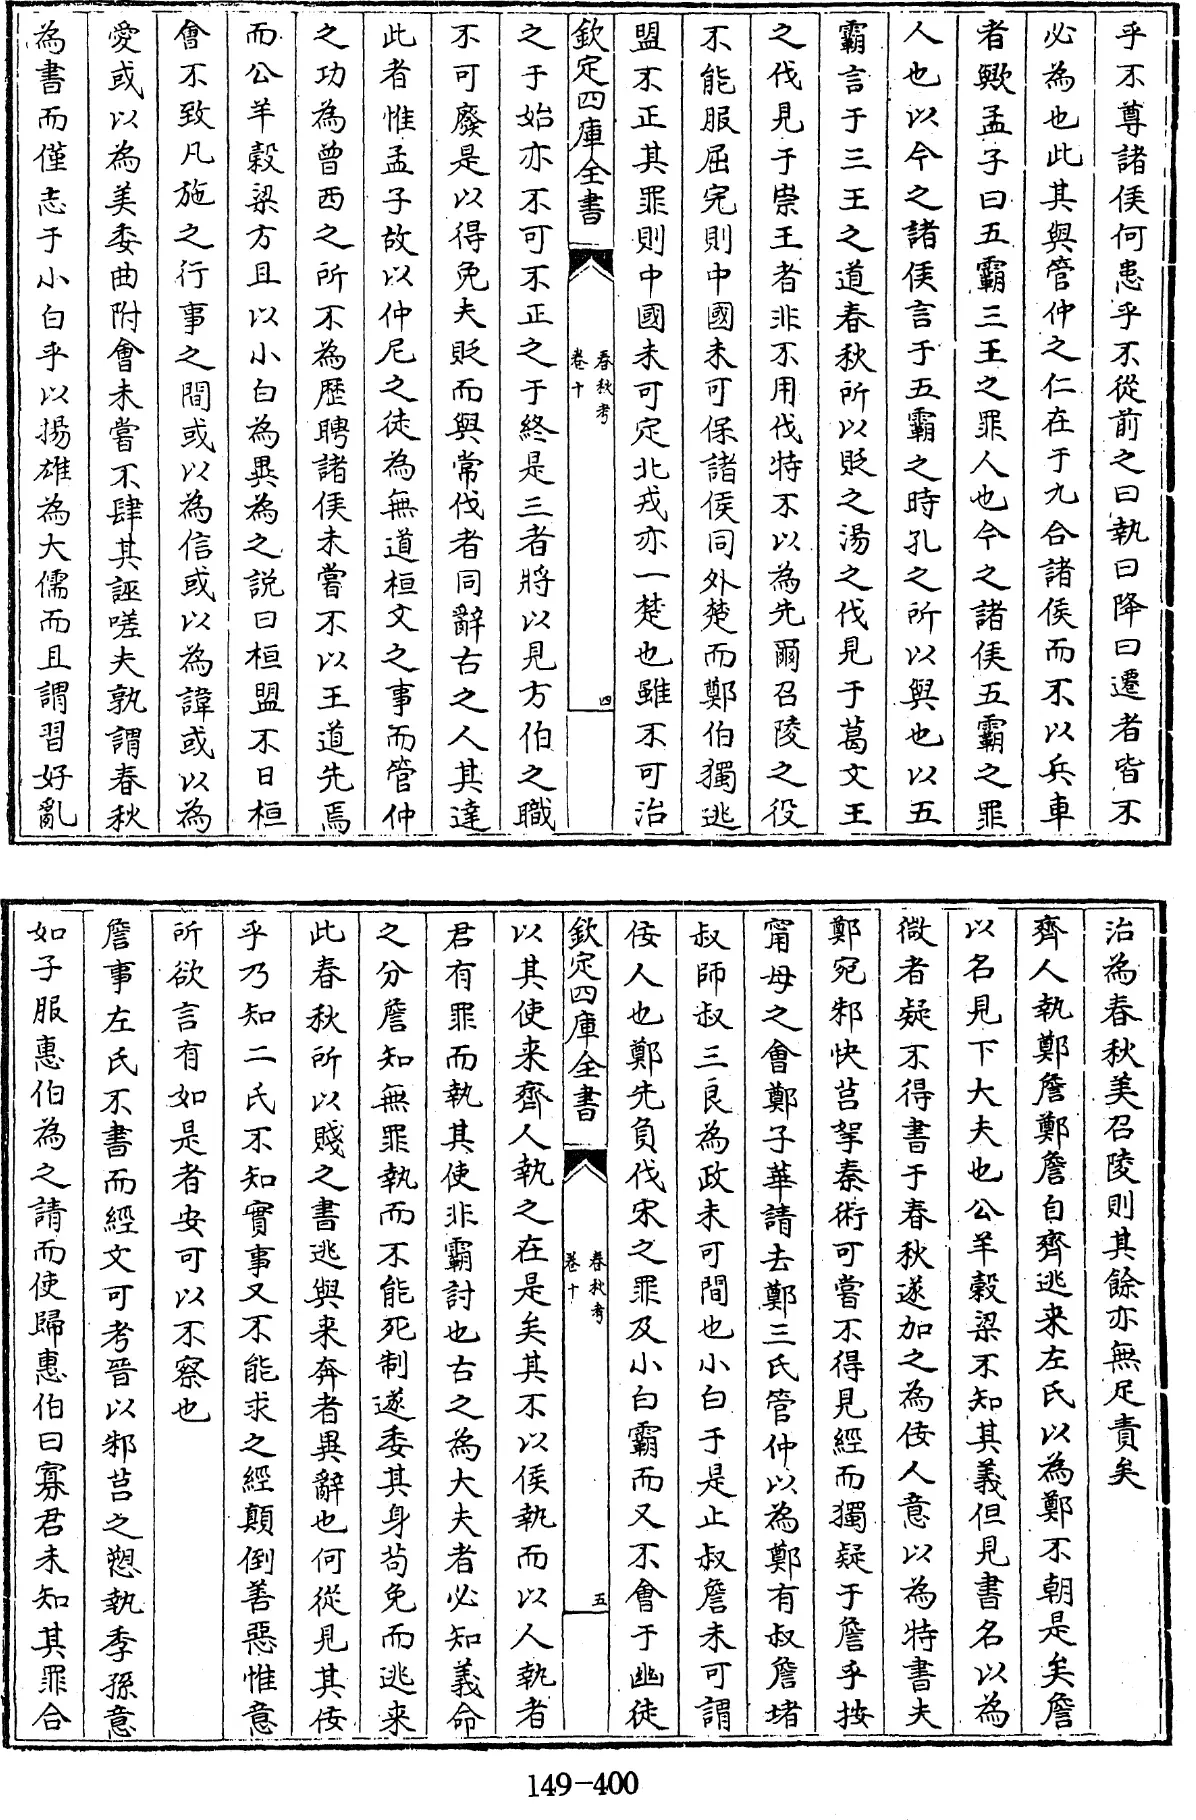 乎不尊諸侯何患乎不從前之曰執曰降曰遷者皆不
必為也此其與管仲之仁在于九合諸侯而不以兵車
者歟孟子曰五霸三王之罪人也今之諸侯五霸之罪
人也以今之諸侯言于五霸之時孔之所以與也以五
霸言于三王之道春秋所以貶之湯之伐見于葛文王
之伐見于崇王者非不用伐特不以為先爾召陵之役
不能服屈完則中國未可保諸侯同外楚而鄭伯獨逃
盟不正其罪則中國未可定北戎亦一楚也雖不可治
欽定四庫全書
春秋考
卷十
四
之于始亦不可不正之于終是三者將以見方伯之職
不可廢是以得免夫貶而與常伐者同辭古之人其達
此者惟孟子故以仲尼之徒為無道桓文之事而管仲
之功為曾西之所不為歷聘諸侯未嘗不以王道先焉
而公羊榖梁方且以小白為異為之説曰桓盟不日桓
會不致凡施之行事之間或以為信或以為諱或以為
愛或以為美委曲附會未嘗不肆其誣嗟夫孰謂春秋
為書而僅志于小白乎以揚雄為大儒而且謂習好亂
治為春秋美召陵則其餘亦無足責矣
齊人執鄭詹鄭詹自齊逃来左氏以為鄭不朝是矣詹
以名見下大夫也公羊榖梁不知其義但見書名以為
微者疑不得書于春秋遂加之為佞人意以為特書夫
鄭宛邾快莒挐秦術可嘗不得見經而獨疑于詹乎按
甯母之會鄭子華請去鄭三氏管仲以為鄭有叔詹堵
叔師叔三良為政未可間也小白于是止叔詹未可謂
佞人也鄭先負伐宋之罪及小白霸而又不會于幽徒
欽定四庫全書
春秋考
卷十
五
以其使来齊人執之在是矣其不以侯執而以人執者
君有罪而執其使非霸討也古之為大夫者必知義命
之分詹知無罪執而不能死制遂委其身苟免而逃来
此春秋所以賤之書逃與来奔者異辭也何從見其佞
乎乃知二氏不知實事又不能求之經顛倒善惡惟意
所欲言有如是者安可以不察也
詹事左氏不書而經文可考晉以邾莒之愬執季孫意
如子服惠伯為之請而使歸惠伯曰寡君未知其罪合
149-400